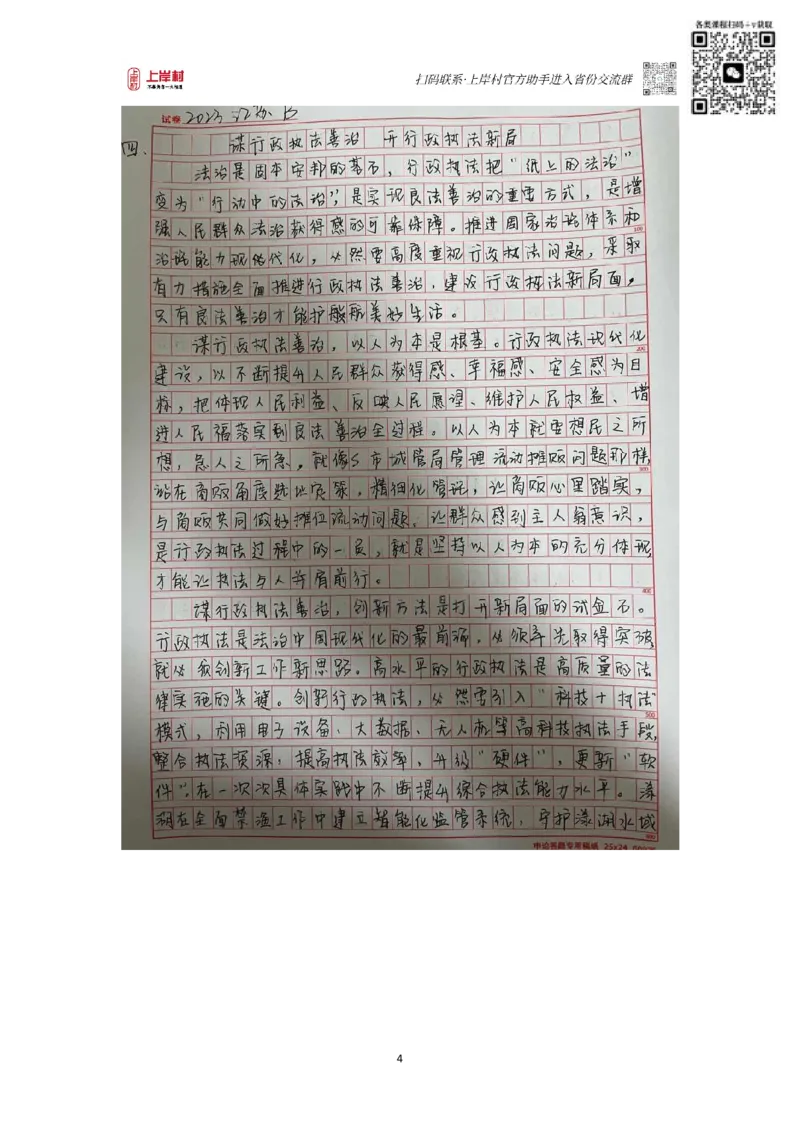 各类课程扫码+v获取
上岸村
不要再考一次啦
扫码联系·上岸村官方助手进入省份交流群
试卷 2023 江苏 B
四、
谋行政执法善治 开行政执法新局
法治是固本安邦的基石，行政执法把“纸上的法治”
变为“行动中的法治”，是实现良法善治的重要方式，是增
强人民群众法治获得感的可靠保障。推进国家治理体系和
治理能力现代化，必然要高度重视行政执法问题，采取
有力措施全面推进行政执法善治，建设行政执法新局面，
只有良法善治才能护航美好生活。
谋行政执法善治，以人为本是根基。行政执法现代化
建设，以不断提升人民群众获得感、幸福感、安全感为目
标，把体现人民利益、反映人民愿望、维护人民权益、增
进人民福落实到良法善治全过程。以人为本就要想民之所
想，急人之所急，就像S市城管局管理流动摊贩问题那样，
站在商贩角度，精细化管理，让商贩心里踏实，
与商贩共同做好摊位流动问题，让群众感到主人翁意识，
是行政执法过程中的一员，就是坚持以人为本的充分体现
才能让执法与人并肩前行。
谋行政执法善治，创新方法是打开新局面的试金石。
行政执法是法治中国现代化的最前沿，必须率先取得突破，
就必须创新工作新思路。高水平的行政执法是高质量的法
律实施的关键。创新行政执法，必然要引入“科技+执法”
模式，利用电子设备、大数据、无人机等高科技执法手段，
整合执法资源，提高执法效率，升级“硬件”，更新“软
件”。在一次次具体实践中不断提升综合执法能力水平。漾
湖在全面禁渔工作中建立智能化监管系统，守护漾湖水域
申论答题专用稿纸 25x24
4